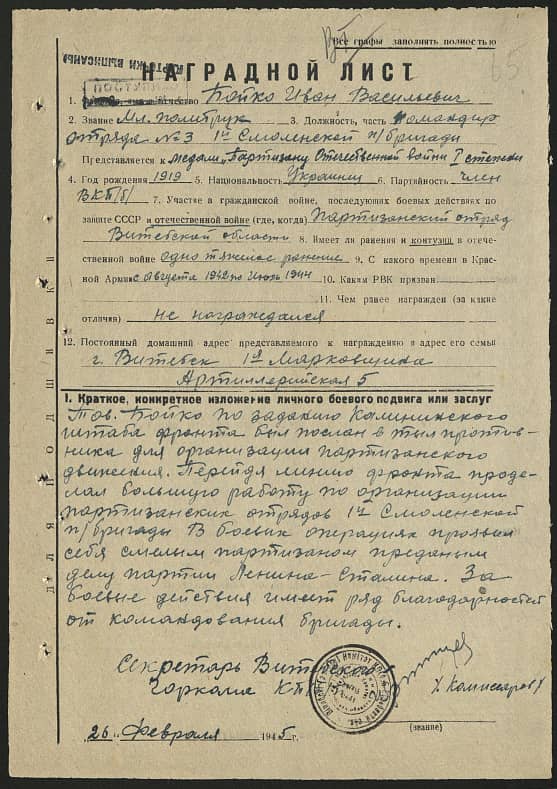 Все графы заполнять полностью
КАРТОЧКИ ВЫПИСАНЫ
65
НАГРАДНОЙ ЛИСТ
1. Фамилия, имя и отчество Бойко Иван Васильевич
2. Звание Мл. политрук 3. Должность, часть Командир
отряда №3 1й Смоленской п/бригады
Представляется к медали „Партизану Отечественной войны" I степени
4. Год рождения 1919 5. Национальность Украинец 6. Партийность член
ВКП/б/ 7. Участие в гражданской войне, последующих боевых действиях по
защите СССР и отечественной войне (где, когда) Партизанский отряд
Витебской области 8. Имеет ли ранения и контузии в отече-
ственной войне одно тяжелое ранение 9. С какого времени в Крас-
ной Армии с августа 1942 по июль 1944 10. Каким РВК призван
11. Чем ранее награжден (за какие
отличия) не награждался
12. Постоянный домашний адрес представляемого к награждению и адрес его семьи
г. Витебск 1я Марковщина
Артиллерийская 5
I. Краткое, конкретное изложение личного боевого подвига или заслуг
Тов. Бойко по заданию Калининского
штаба фронта был послан в тыл против-
ника для организации партизанского
движения. Перейдя линию фронта проде-
лал большую работу по организации
партизанских отрядов 1й Смоленской
п/бригады В боевых операциях проявил
себя смелым партизаном преданым
делу партии Ленина-Сталина. За
боевые действия имеет ряд благодарностей
от командования бригады.
Секретарь Витебского
Горкома КП/б/
/Комиссаров/
26 Февраля 1945 г.
(звание)
ДЛЯ ПОДШИВКИ